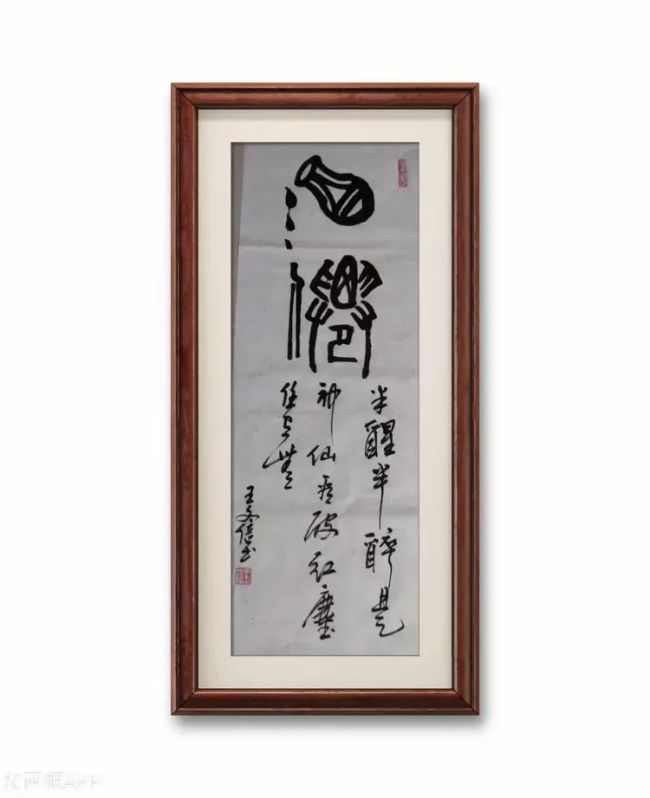 酒僊
半醒半醉是
神仙看破红塵
任
王文信书